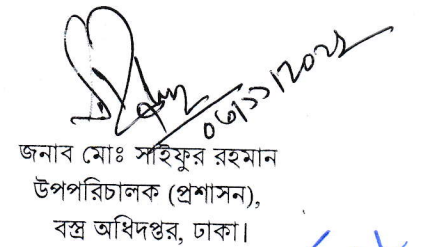 ০৬/১১/২০২২
জনাব মোঃ সাইফুর রহমান
উপপরিচালক (প্রশাসন),
বস্ত্র অধিদপ্তর, ঢাকা।